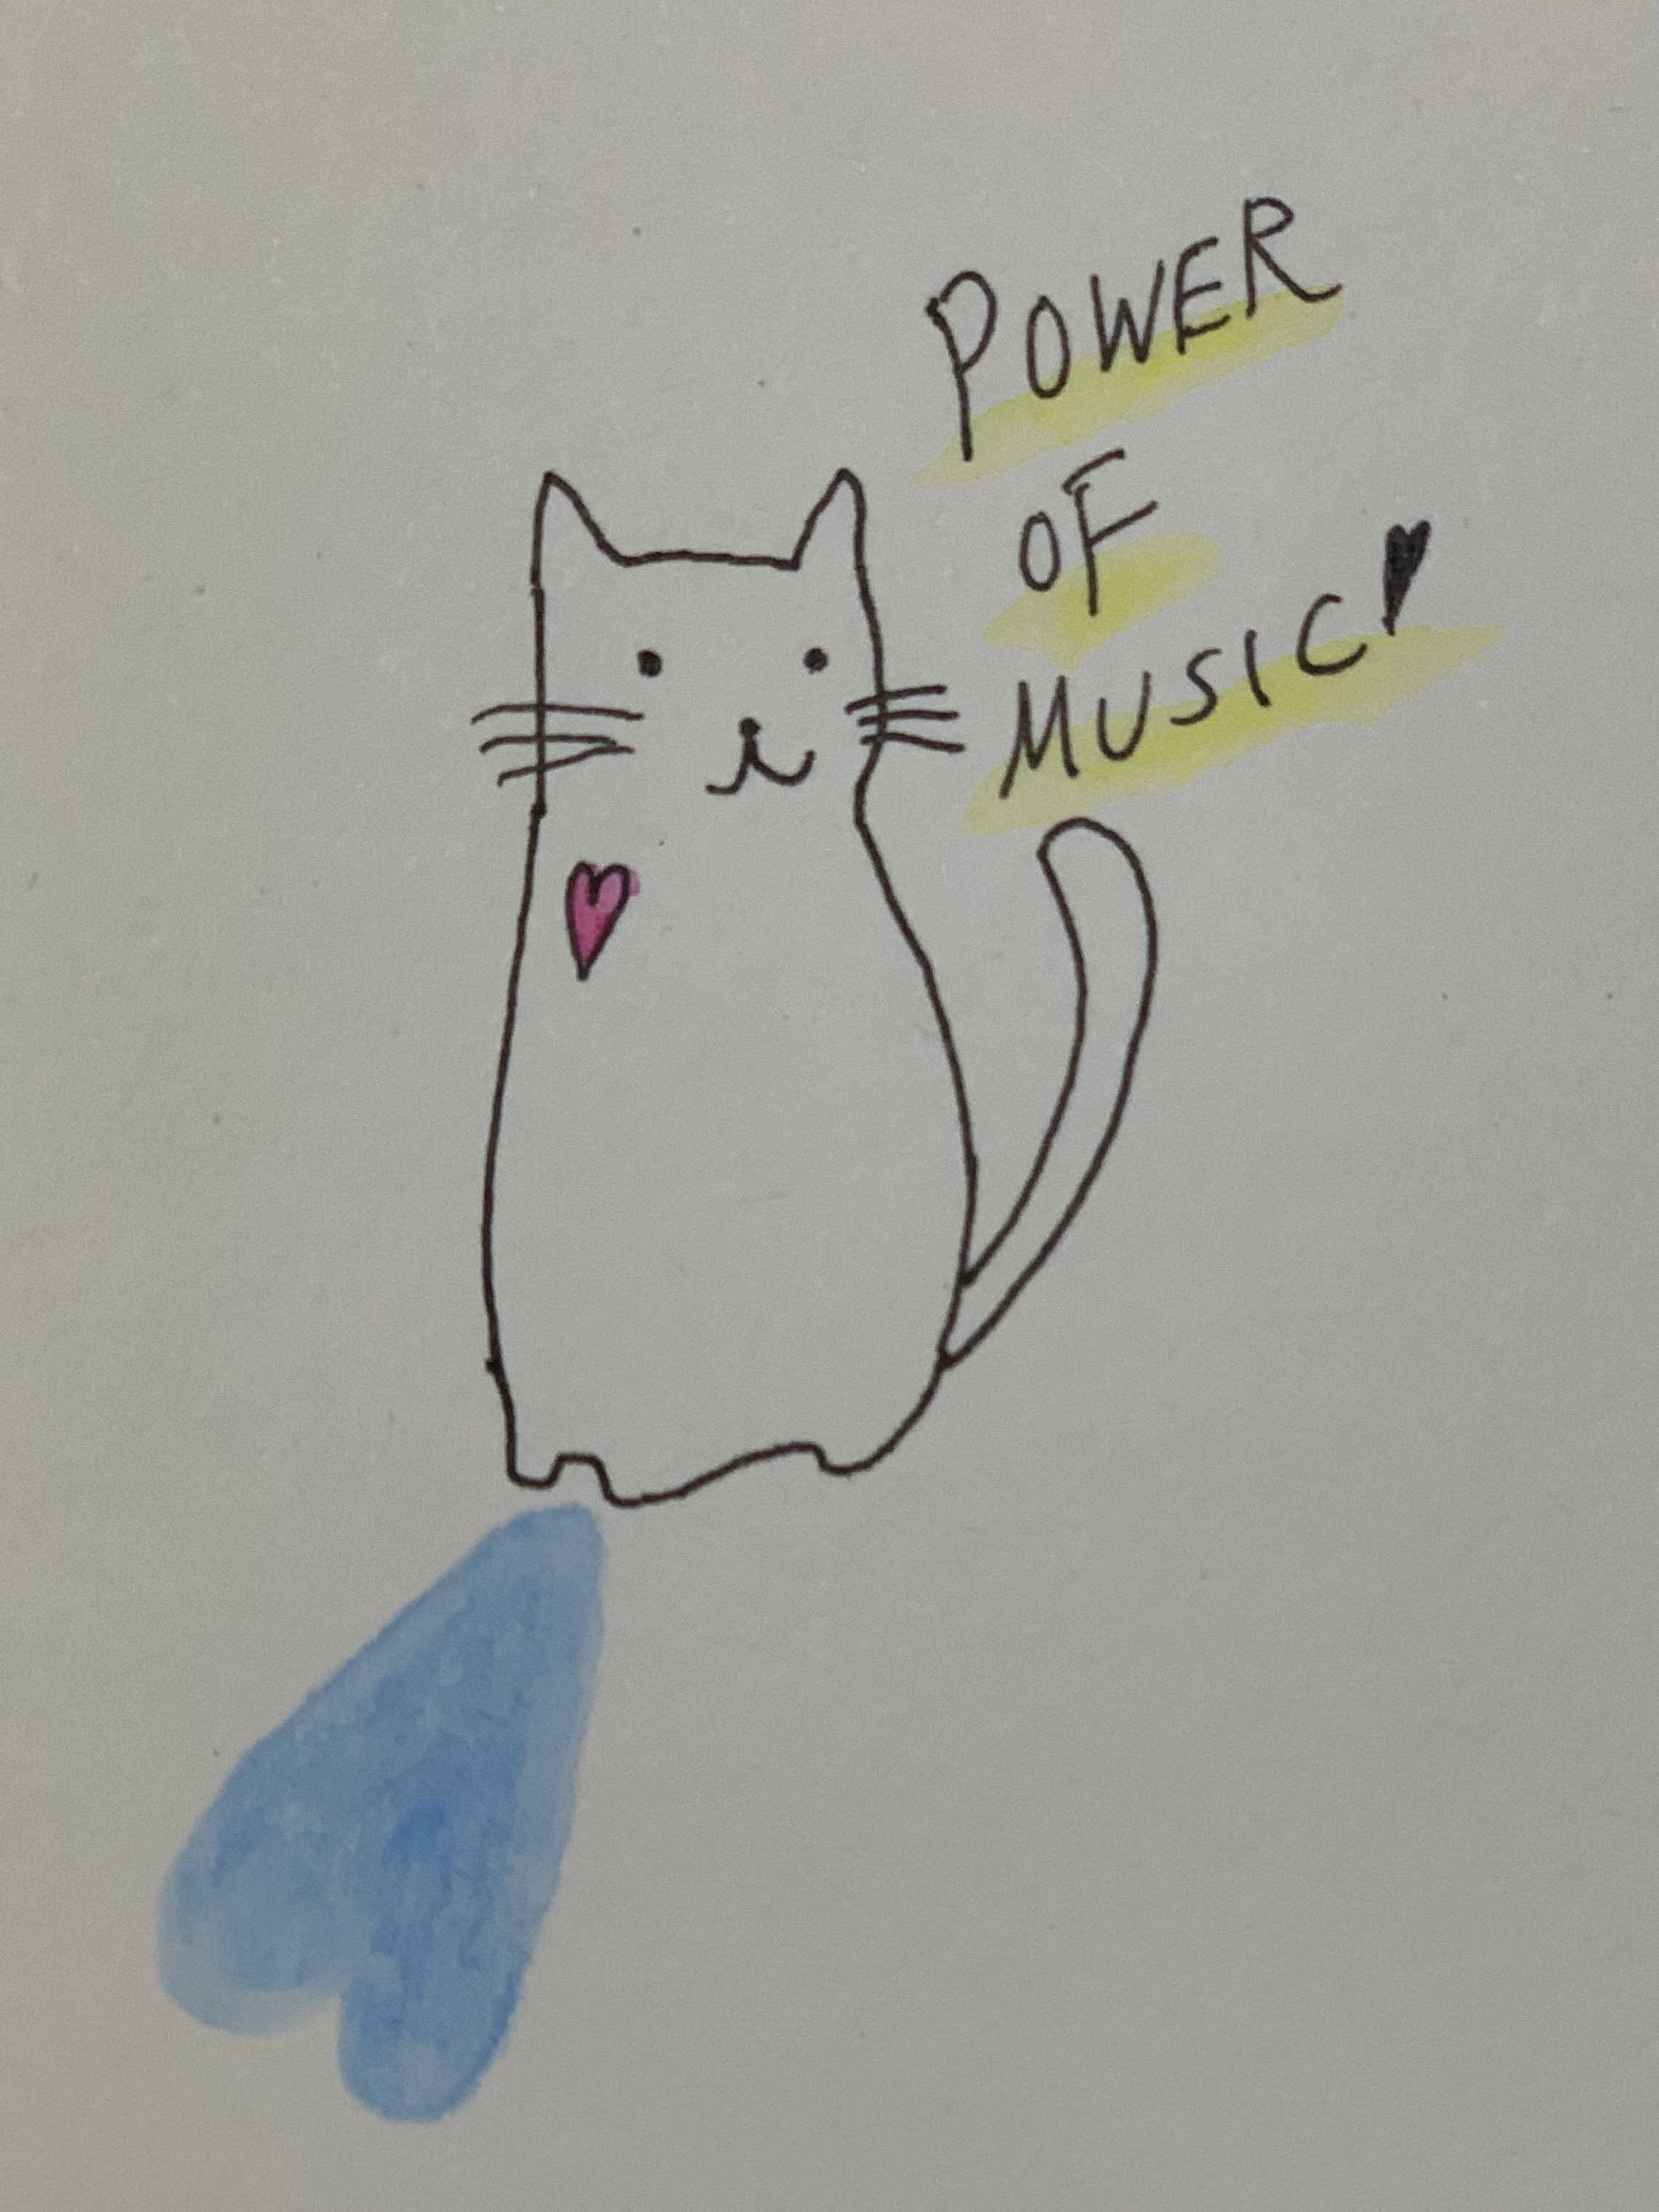 POWER
OF
MUSIC♥